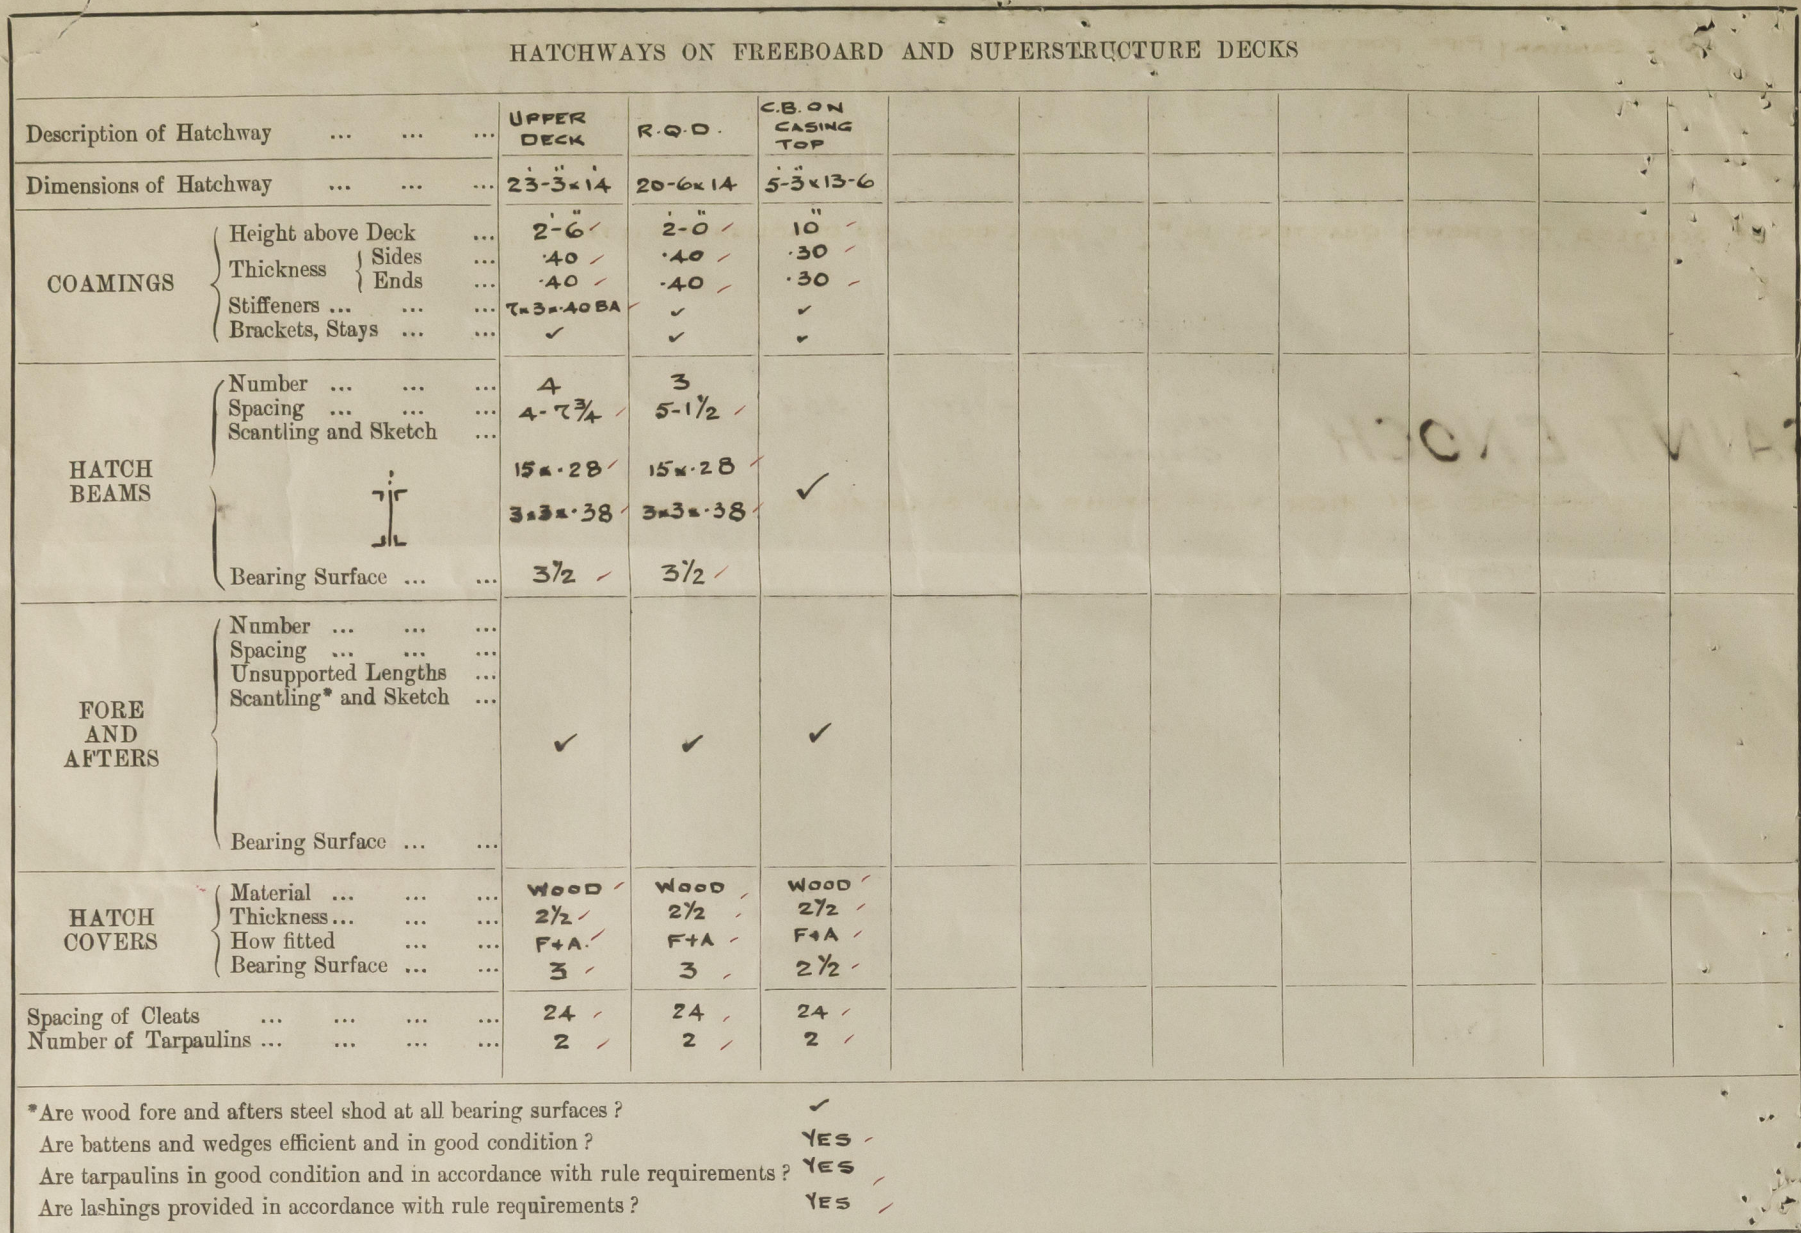 HATCHWAYS ON FREEBOARD AND SUPERSTRUCTURE DECKS
Description of Hatchway ... ... ... UPPER DECK R.Q.D. C.B. ON CASING TOP
Dimensions of Hatchway ... ... ... 23'-3"x14' 20-6x14 5'-3"x13-6
COAMINGS
Height above Deck ... 2'-6" 2'-0" 10"
Thickness { Sides ... .40 .40 .30
Ends ... .40 .40 .30
Stiffeners ... ... ... 7x3x.40 BA ✓ ✓
Brackets, Stays ... ... ✓ ✓ ✓
HATCH BEAMS
Number ... ... ... 4 3
Spacing ... ... ... 4-7¾ 5-1½
Scantling and Sketch ...
15x.28 15x.28 ✓
3x3x.38 3x3x.38
Bearing Surface ... ... 3½ 3½
FORE AND AFTERS
Number ... ... ...
Spacing ... ... ...
Unsupported Lengths ...
Scantling* and Sketch ...
✓ ✓ ✓
Bearing Surface ... ...
HATCH COVERS
Material ... ... ... WOOD WOOD WOOD
Thickness ... ... ... 2½ 2½ 2½
How fitted ... ... F+A. F+A F+A
Bearing Surface ... ... 3 3 2½
Spacing of Cleats ... ... ... ... 24 24 24
Number of Tarpaulins ... ... ... ... 2 2 2
*Are wood fore and afters steel shod at all bearing surfaces ? ✓
Are battens and wedges efficient and in good condition ? YES
Are tarpaulins in good condition and in accordance with rule requirements ? YES
Are lashings provided in accordance with rule requirements ? YES